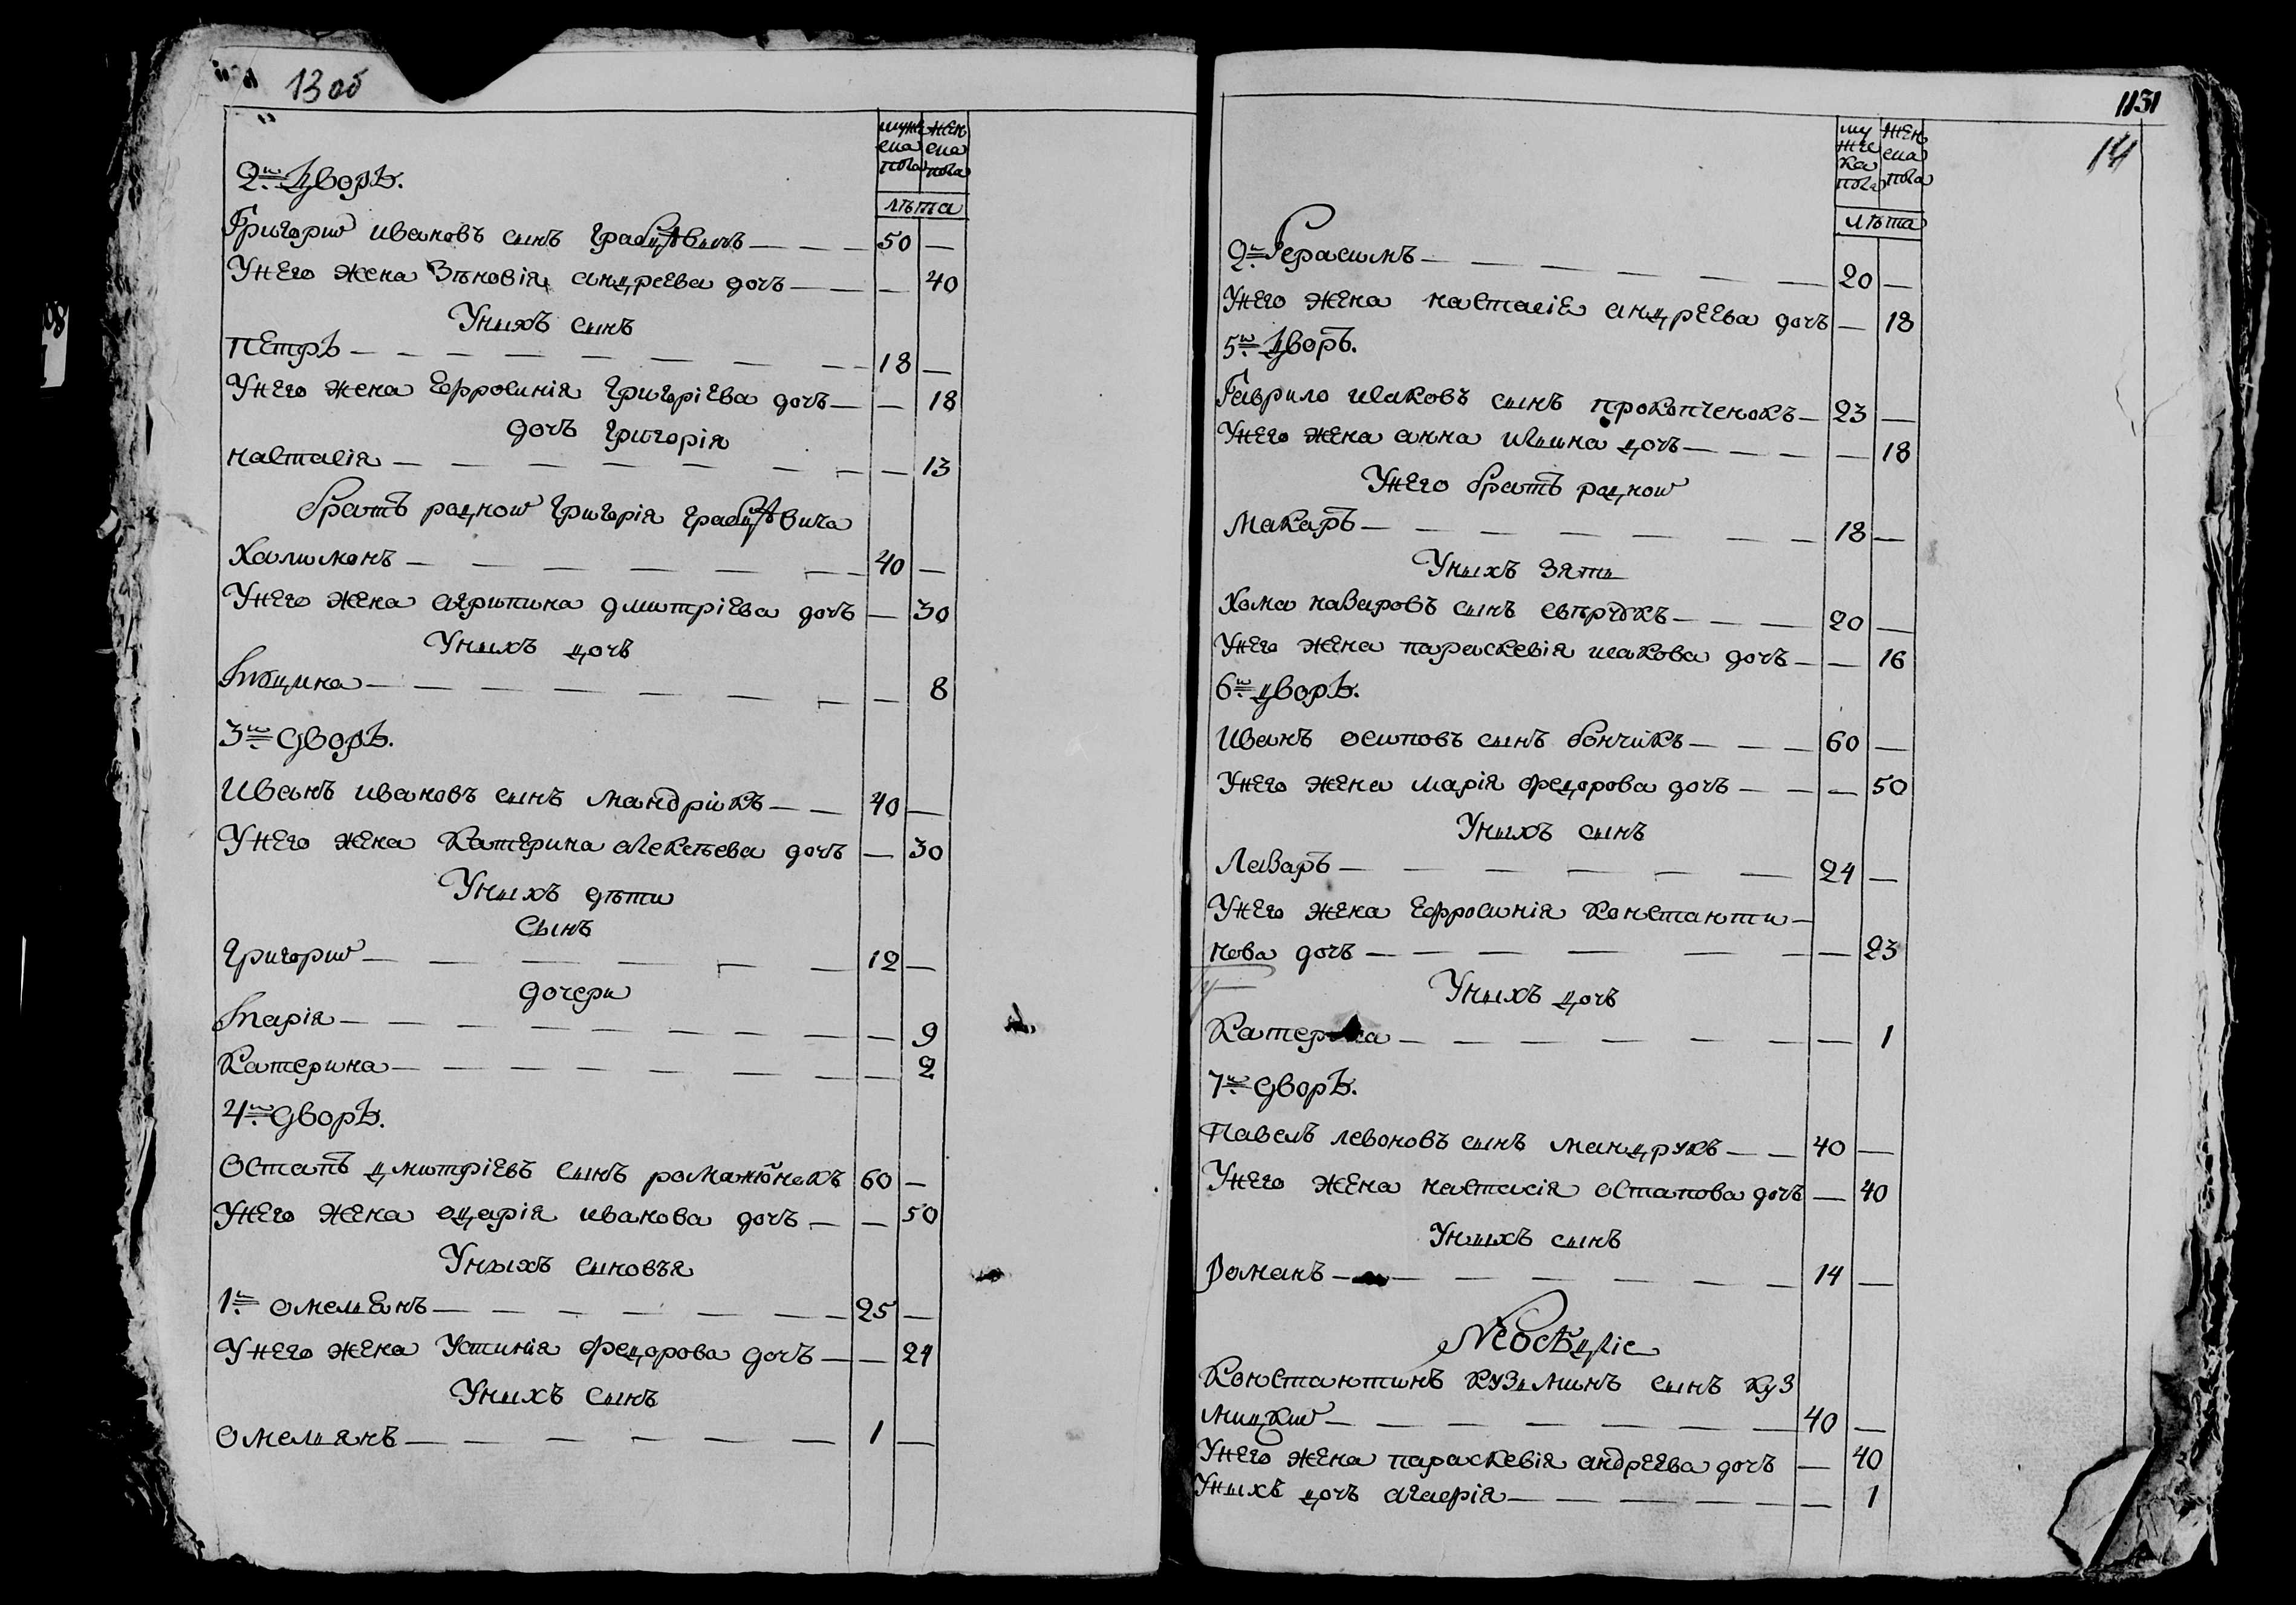 13 об
муже ска пола
жен ска пола
2й Дворъ.
лѣта
Григорий ивановъ сынъ — — — 50 —
У него жена Зѣновія андреева дочъ — — — 40
У нихъ сынъ
Петръ — — — 18 —
У него жена Ефросинія Григоріева дочъ — — 18
дочъ Григорія
настасія — — — 13
братъ родной Григорія
Халимонъ — — — 40 —
У него жена агрипина дмитріева дочъ — 30
У нихъ дочъ
— — — 8
3й дворъ.
Иванъ ивановъ сынъ мандрикъ — — 40 —
У него жена Катерина алексѣева дочъ — 30
У нихъ дѣти
Сынъ
Григорий — — — 12 —
дочери
Марія — — — 9
Катерина — — — 2
4й дворъ.
Остапъ дмитріевъ сынъ романюнокъ 60 —
У него жена одарія иванова дочъ — — 50
У нихъ синовъя
1й омелянъ — — — 25 —
У него жена Устинія федорова дочъ — — 24
У нихъ Сынъ
омелянъ — — — 1 —
1131
14
му же ска пола
жен ска пола
лѣта
2й Герасимъ — — — 20 —
У него жена настасіе андреева дочъ — 18
5й Дворъ.
Гаврило исаковъ сынъ прокопченокъ — 23 —
У него жена анна илина дочъ — — — 18
У него братъ родной
Макаръ — — — 18 —
У нихъ зяти
Хома назаровъ сынъ свѣрчокъ — — — 20 —
У него жена параскевія исакова дочъ — — 16
6й дворъ.
Иванъ осиповъ сынъ бончикъ — — — 60 —
У него жена марія федорова дочъ — — — 50
У нихъ сынъ
Лазаръ — — — 24 —
У него жена Ефросинія Константи-
нова дочъ — — — 23
У нихъ дочъ
Катерина — — — 1
7й дворъ.
Павелъ левоновъ сынъ мандрукъ — — 40 —
У него жена настасія остапова дочъ — 40
У нихъ сынъ
Романъ — — — 14 —
Константинъ кузминъ сынъ куз
мицкий — — — 40 —
У него жена параскевія андреева дочъ — 40
У нихъ дочъ агаѳія — — — 1